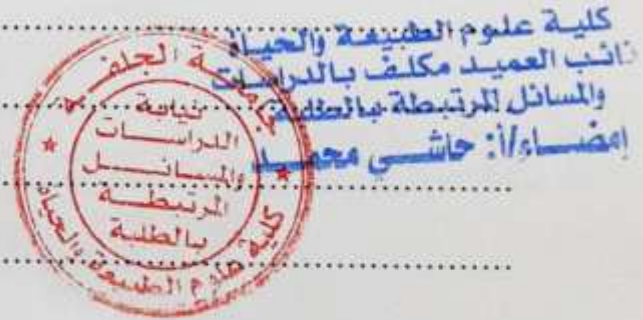 كلية علوم الطبيعة والحياة
نائب العميد مكلف بالدراسات
والمسائل المرتبطة بالطلبة
إمضـــاء/أ: حاشـــي محمـــد
جامعة الجلفة
نيابة
الدراســـات
والمســـائـــل
المرتبطـــة
بالطلبة
كلية علوم الطبيعة والحياة